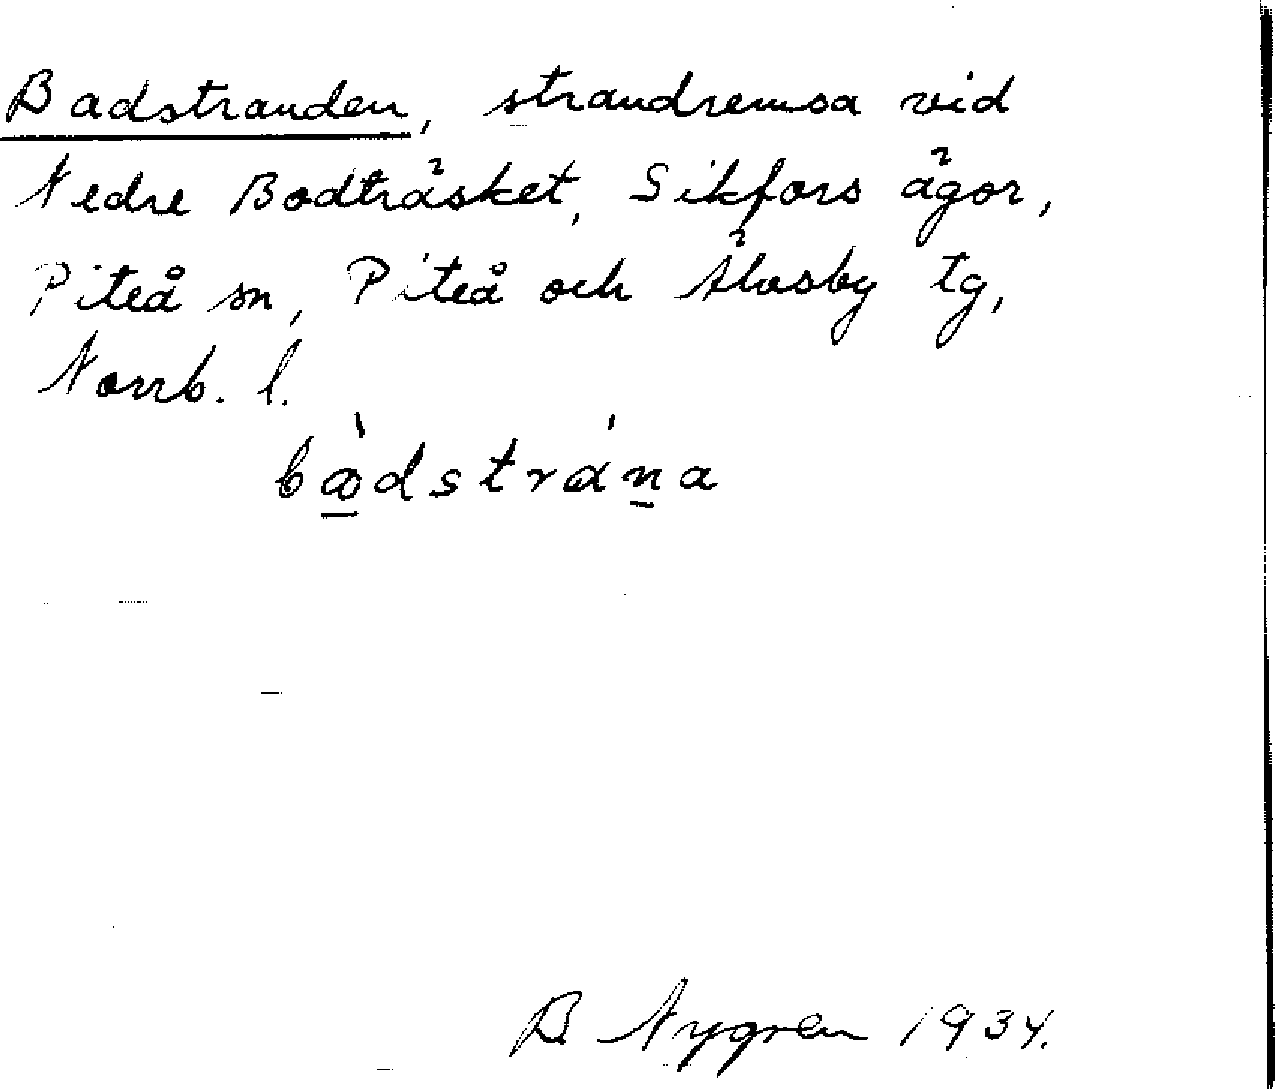 Badstranden, strandremsa vid
Nedre Bodträsket, Sikfors ägor,
Piteå sn, Piteå och Älvsby tg,
Norrb. l.
bæ̀dstrána
B Nygren 1934.